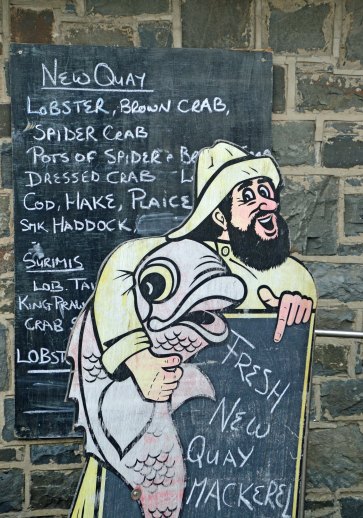 NEW QUAY
LOBSTER, BROWN CRAB,
SPIDER CRAB
POTS OF SPIDER &
DRESSED CRAB
COD, HAKE, PLAICE
SMK. HADDOCK.
SURIMIS
LOB. TAI
KING PRAW
CRAB
LOBST
FRESH
NEW
QUAY
MACKEREL